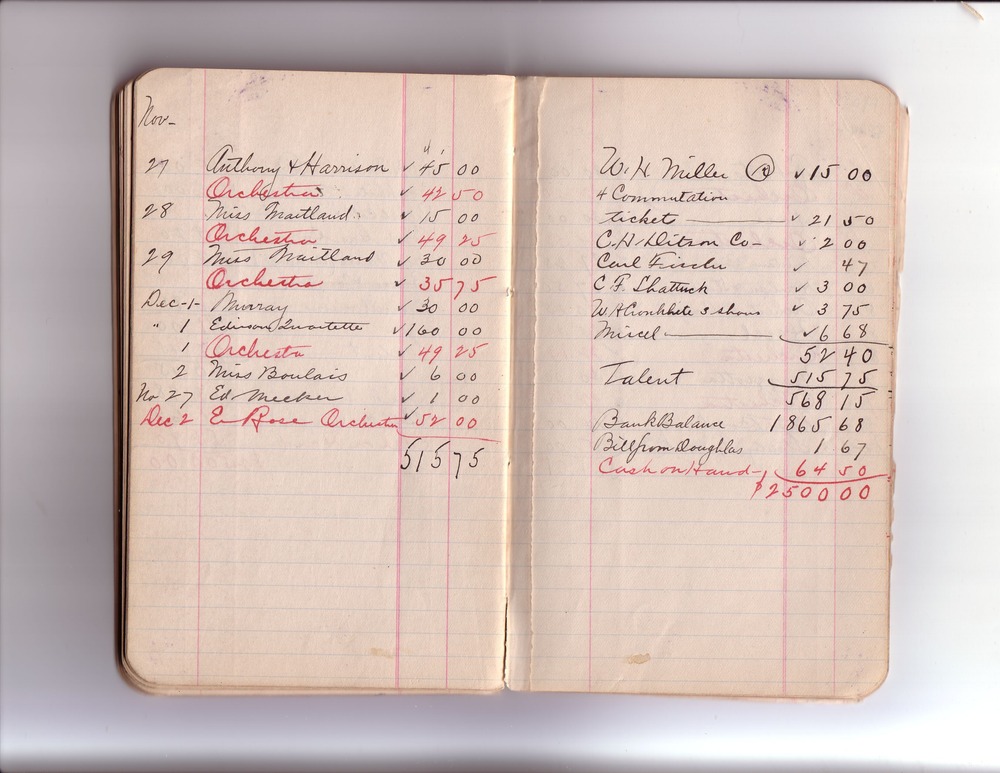 Nov-
27 Anthony & Harrison ✓ 45 00
Orchestra ✓ 42 50
28 Miss Maitland ✓ 15 00
Orchestra ✓ 49 25
29 Miss Maitland ✓ 30 00
Orchestra ✓ 35 75
Dec-1- Murray ✓ 30 00
" 1 Edison Quartette ✓ 160 00
1 Orchestra ✓ 49 25
2 Miss Boulais ✓ 6 00
No 27 Ed Meeker ✓ 1 00
Dec 2 E Rose Orchestra ✓ 52 00
515 75
W. H. Miller ✓ 15 00
4 Commutation
tickets ✓ 21 50
C. H. Ditson Co- ✓ 2 00
Carl Fischer ✓ 47
C. F. Shattuck ✓ 3 00
W A Cronkhite 3 shows ✓ 3 75
Miscel ✓ 6 68
52 40
Talent 515 75
568 15
Bank Balance 1865 68
Bill from Doughlas 1 67
Cash on Hand- 64 50
$2500 00